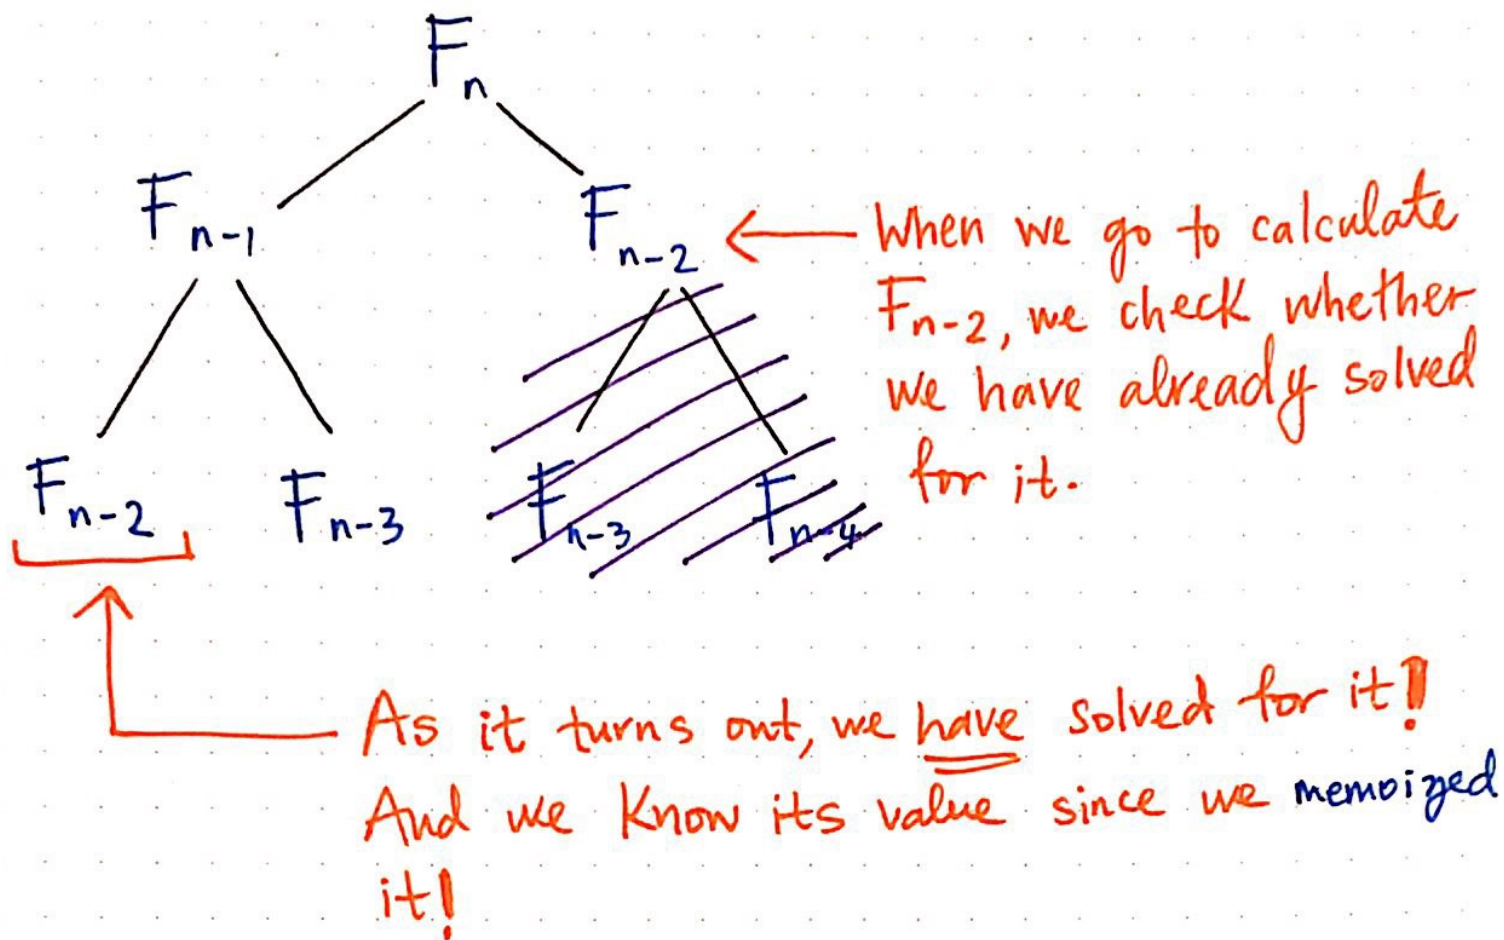 Fn
Fn-1
Fn-2
← When we go to calculate
Fn-2, we check whether
we have already solved
for it.
Fn-2
Fn-3
Fn-3
Fn-4
As it turns out, we have solved for it!
And we know its value since we memoized
it!